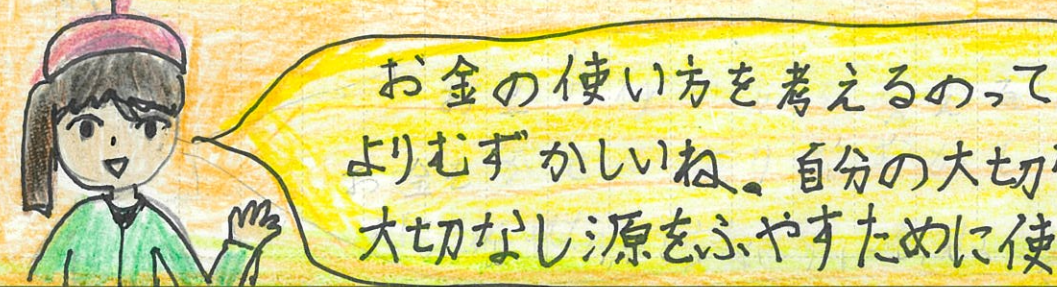 お金の使い方を考えるのって
よりむずかしいね。自分の大切
大切なし源をふやすために使